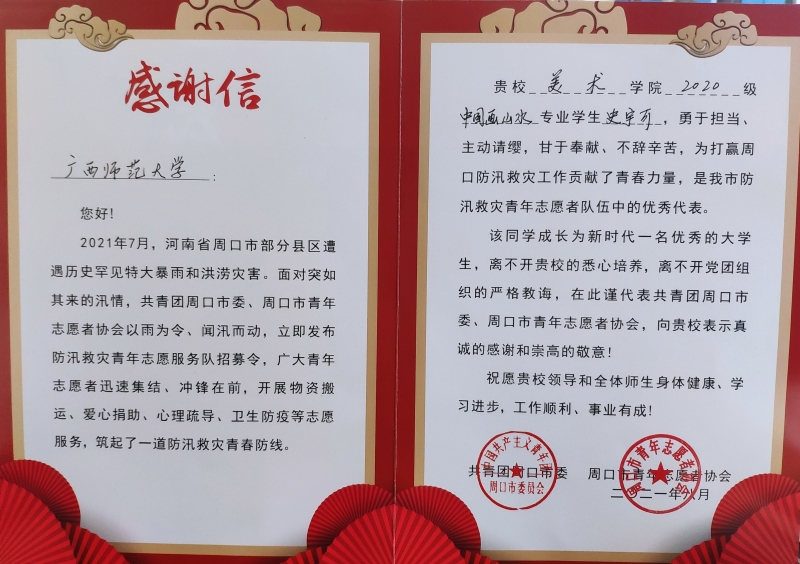 感谢信
广西师范大学：
您好！
2021年7月，河南省周口市部分县区遭
遇历史罕见特大暴雨和洪涝灾害。面对突如
其来的汛情，共青团周口市委、周口市青年
志愿者协会以雨为令、闻汛而动，立即发布
防汛救灾青年志愿服务队招募令，广大青年
志愿者迅速集结、冲锋在前，开展物资搬
运、爱心捐助、心理疏导、卫生防疫等志愿
服务，筑起了一道防汛救灾青春防线。
贵校美术学院2020级
中国画山水专业学生史宇可，勇于担当、
主动请缨，甘于奉献、不辞辛苦，为打赢周
口防汛救灾工作贡献了青春力量，是我市防
汛救灾青年志愿者队伍中的优秀代表。
该同学成长为新时代一名优秀的大学
生，离不开贵校的悉心培养，离不开党团组
织的严格教诲，在此谨代表共青团周口市
委、周口市青年志愿者协会，向贵校表示真
诚的感谢和崇高的敬意！
祝愿贵校领导和全体师生身体健康、学
习进步，工作顺利、事业有成！
共青团周口市委 周口市青年志愿者协会
二〇二一年八月
中国共产主义青年团
周口市委员会
周口市青年志愿者协会